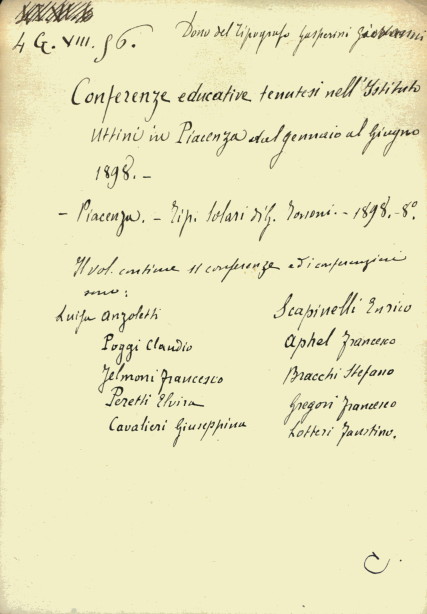 4 G. VIII. 56. Dono del Tipografo Gasperini Giovanni
Conferenze educative tenutesi nell'Istituto
Uttini in Piacenza dal gennaio al Giugno
1898. -
- Piacenza. - Tip. Solari di G. Tononi. - 1898. - 8°.
Il vol. contiene 11 conferenze ed i conferenzieri
sono:
Luisa Anzoletti Scapinelli Enrico
Poggi Claudio Aphel Francesco
Jelmoni Francesco Bracchi Stefano
Peretti Elvira Gregori Francesco
Cavalieri Giuseppina Lotteri Faustino.
C.